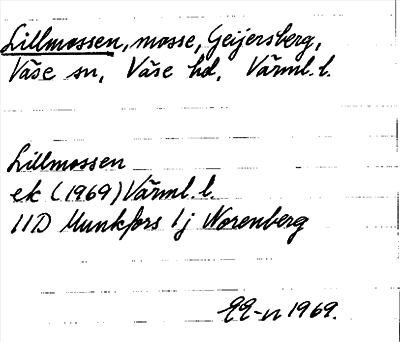 Lillmossen, mosse, Geijersberg,
Väse sn, Väse hd, Värml. l.
Lillmossen
ek (1969) Värml. l.
11D Munkfors 1j Norenberg
EE-n 1969.